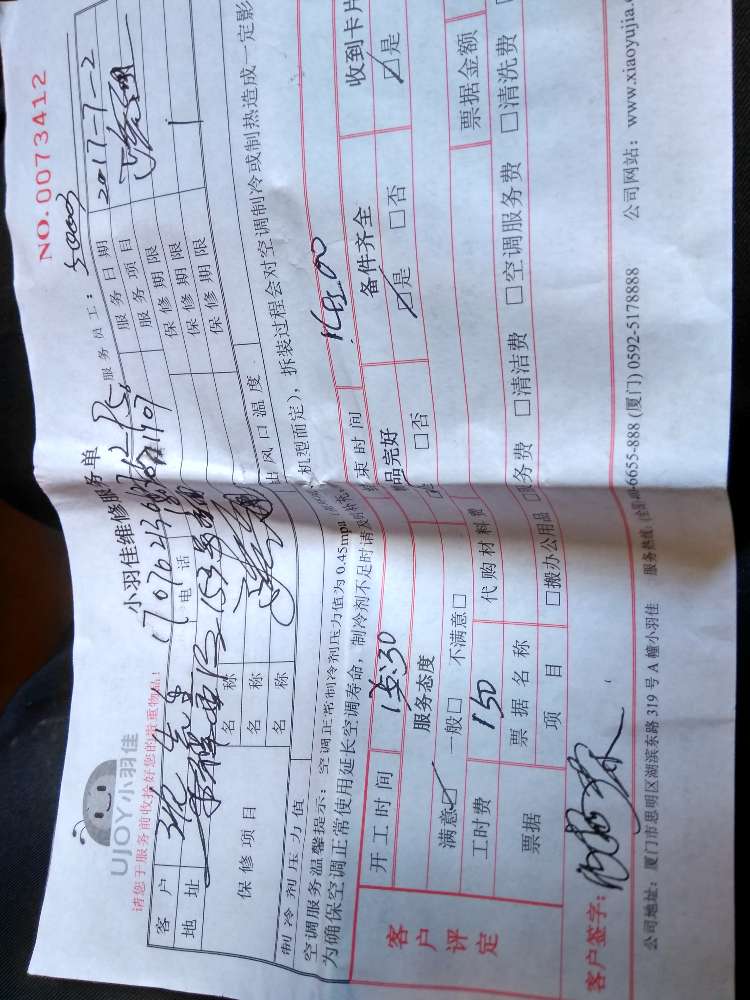 UJOY小羽佳
小羽佳维修服务单
NO.0073412
请您于服务前收拾好您的贵重物品！
服务员工：
客户
电话
服务日期 2017-7-2
地址
服务项目
保修项目
名称
保修期限
名称
保修期限
名称
保修期限
制冷剂压力值
出风口温度
空调服务温馨提示：空调正常制冷剂压力值为0.45mpa
机型而定），拆装过程会对空调制冷或制热造成一定影
为确保空调正常使用延长空调寿命，制冷剂不足时请及
客户评定
开工时间 15:30
束时间 16:00
服务态度
品完好
备件齐全
收到卡片
满意☑ 一般□ 不满意□
□否
☑是 □否
☑是
工时费 150
代购材料费
票据金额
票据
票据名称
项目
□搬办公用品
务费 □清洁费 □空调服务费 □清洗费
客户签字：
公司地址：厦门市思明区湖滨东路319号A幢小羽佳
服务热线：
6655-888 (厦门) 0592-5178888
公司网站：www.xiaoyujia.